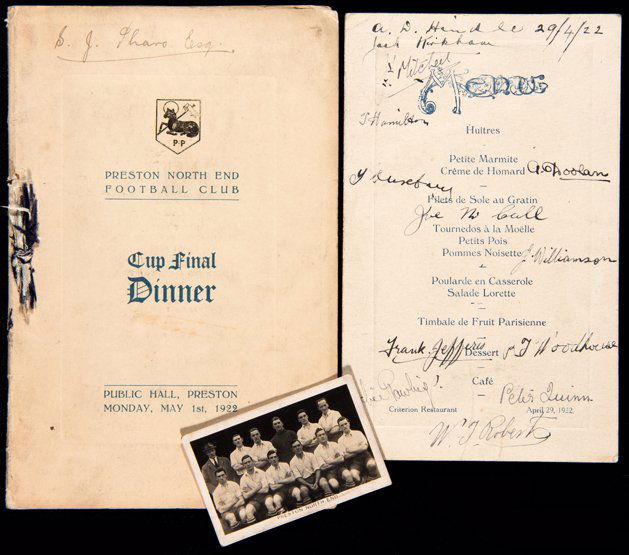 E. J. Pharo Esq.
P P
PRESTON NORTH END
FOOTBALL CLUB
Cup Final
Dinner
PUBLIC HALL, PRESTON
MONDAY, MAY 1st, 1922
PRESTON NORTH END
A. D. Hindle 29/4/22
Jack Kirkham
Mitchell
Menu
T Hamilton
Huîtres
Petite Marmite
Crême de Homard
A. Doolan
J Duxbury
Filets de Sole au Gratin
Joe Mc Call
Tournedos à la Moëlle
Petits Pois
Pommes Noisette
J. Williamson
Poularde en Casserole
Salade Lorette
Timbale de Fruit Parisienne
Frank Jefferis
Dessert
T Woodhouse
Café
Rawlings
Peter Quinn
Criterion Restaurant
April 29, 1922.
W. F. Roberts